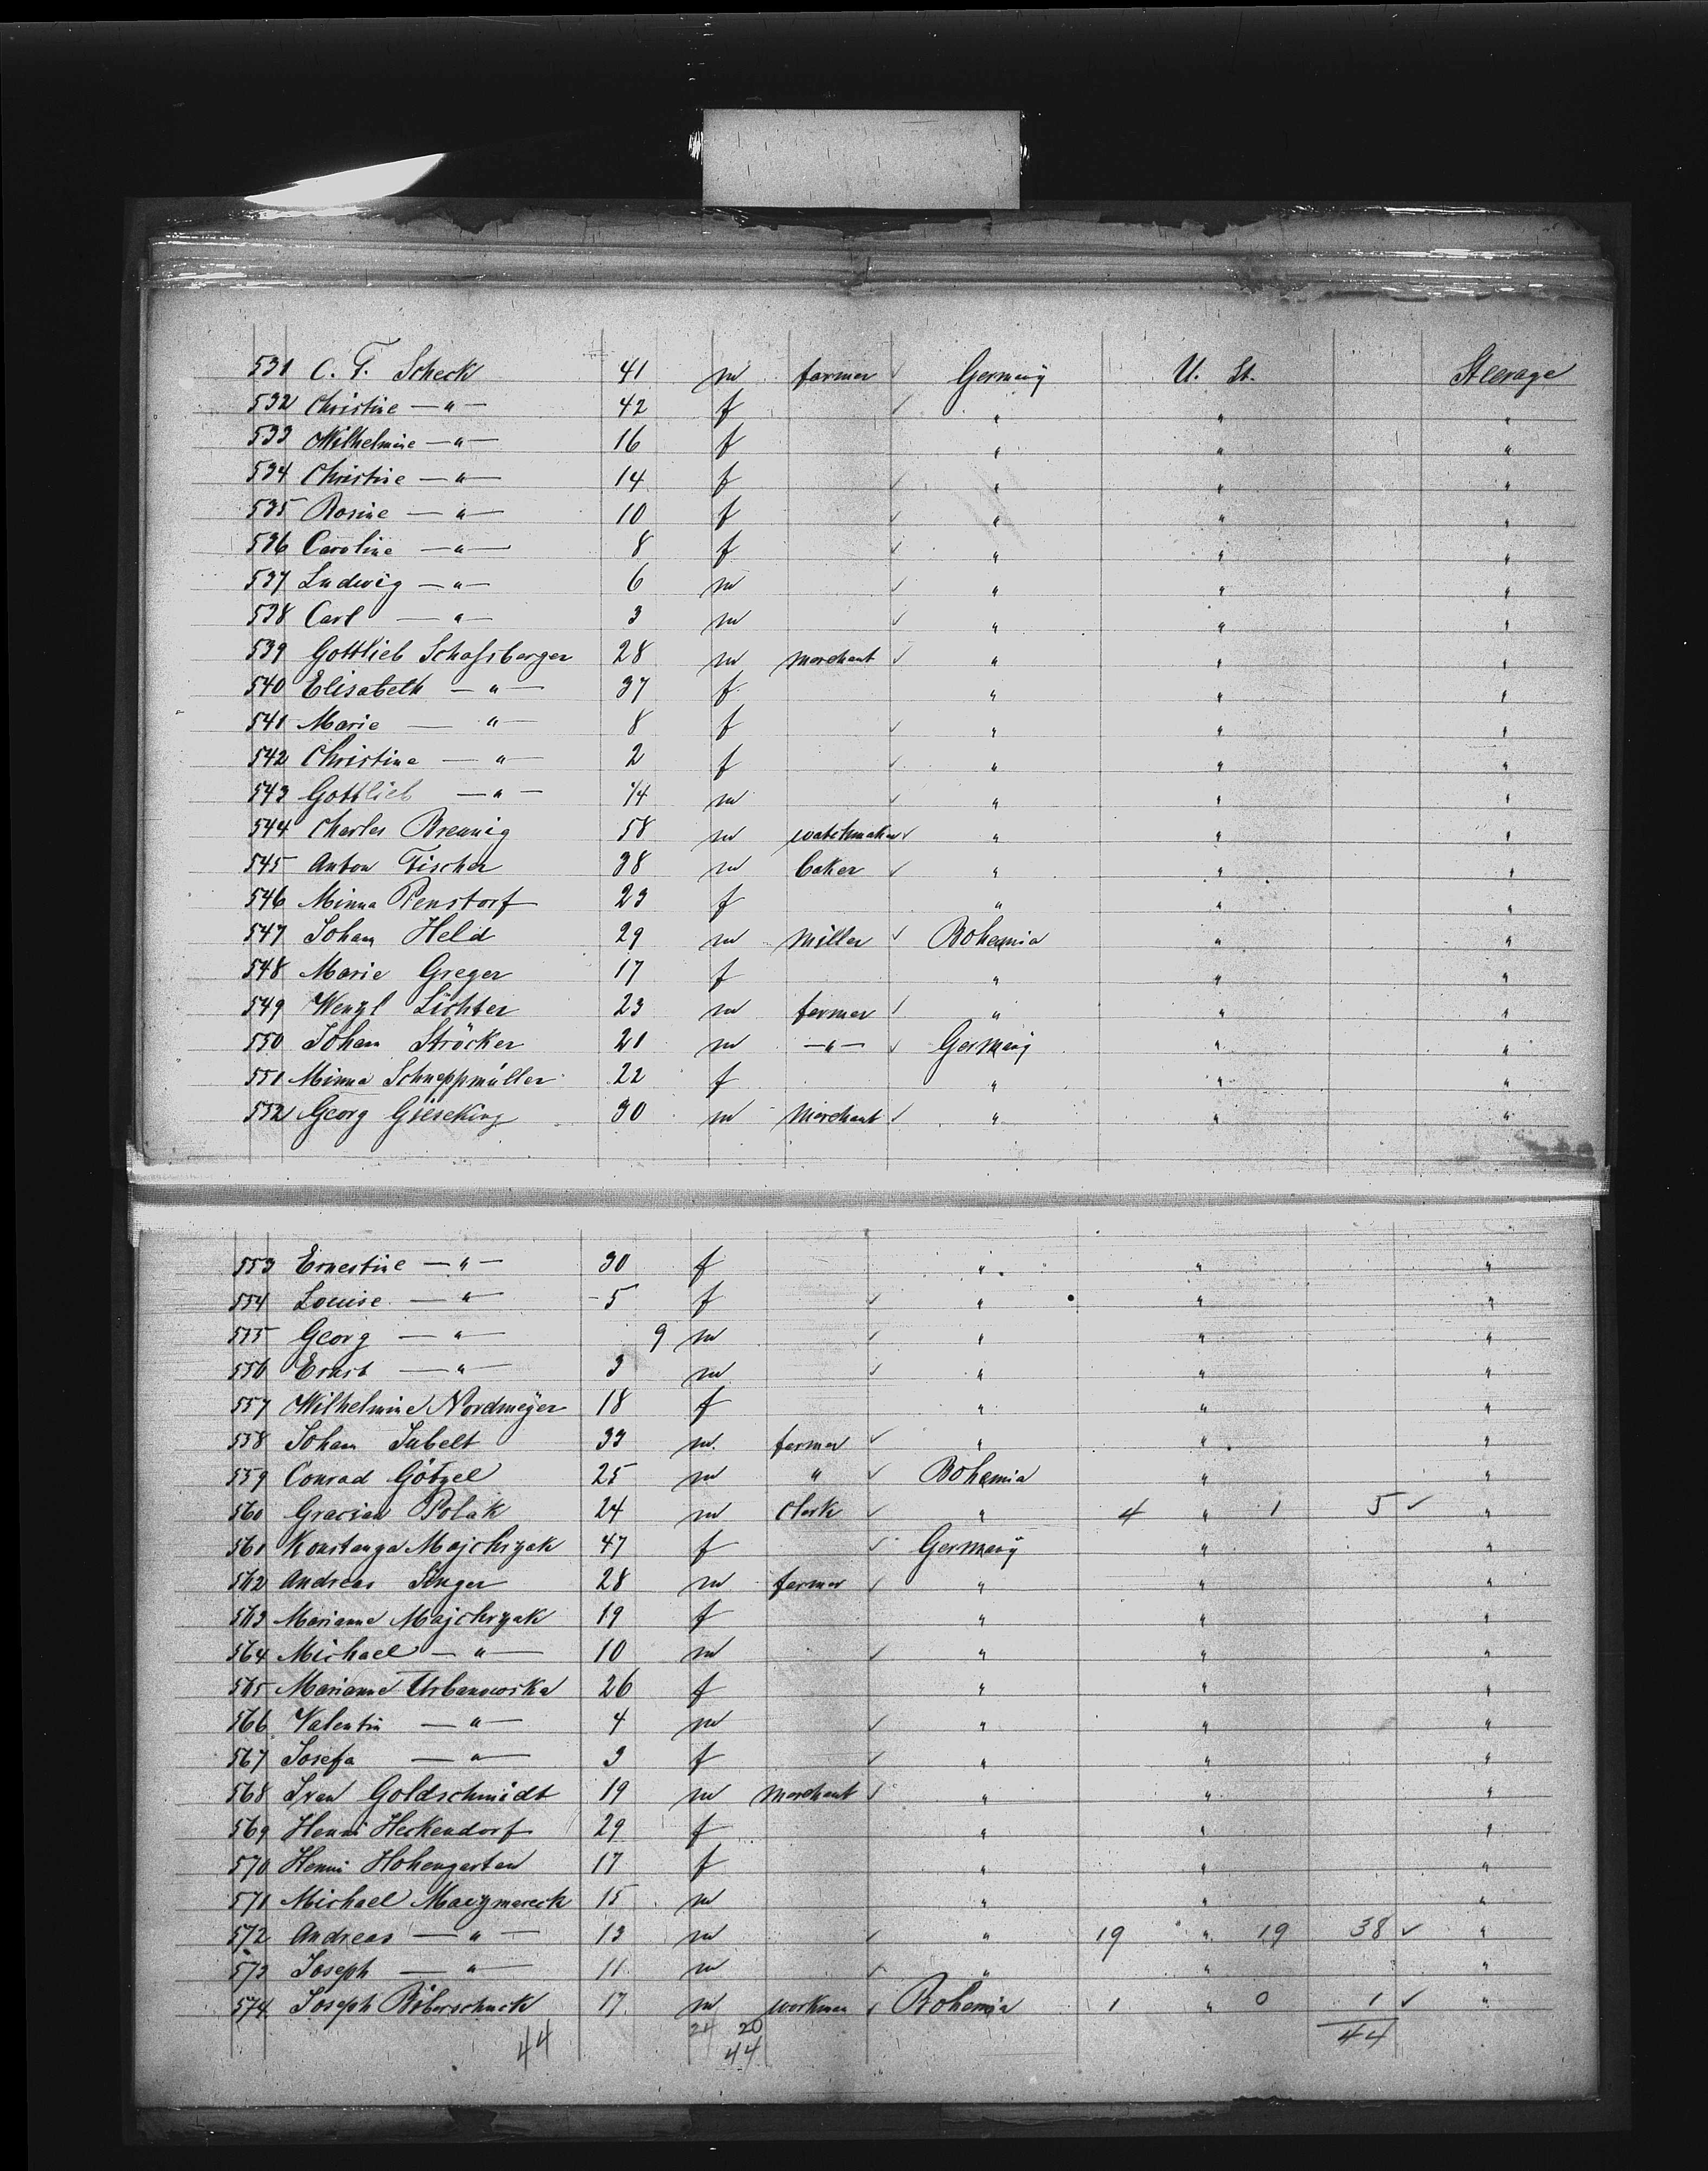 531 C. F. Scheck 41 m farmer ✓ Germany U. St. Steerage
532 Christine — " — 42 f ✓ " " "
533 Wilhelmine — " — 16 f " " "
534 Christine — " — 14 f ✓ " " "
535 Rosine — " — 10 f ✓ " " "
536 Caroline — " — 8 f ✓ " " "
537 Ludwig — " — 6 m ✓ " " "
538 Carl — " — 3 m ✓ " " "
539 Gottlieb Schafsberger 28 m merchant ✓ " " "
540 Elisabeth — " — 37 f " " "
541 Marie — " — 8 f ✓ " " "
542 Christine — " — 2 f ✓ " " "
543 Gottlieb — " — 1/4 m ✓ " " "
544 Charles Brennig 58 m watchmaker ✓ " " "
545 Anton Fischer 38 m baker ✓ " " "
546 Minna Penstorf 23 f " " "
547 Joham Held 29 m miller ✓ Bohemia " "
548 Marie Greger 17 f " " "
549 Wenzl Lichter 23 m farmer ✓ " " "
550 Joham Ströcker 21 m — " — ✓ Germany " "
551 Minna Schneppmüller 22 f " " "
552 Georg Gieseking 30 m merchant ✓ " " "
553 Ernestine — " — 30 f " " "
554 Louise — " — 5 f ✓ " " "
555 Georg — " — 9 m ✓ " " "
556 Ernst — " — 3 m ✓ " " "
557 Wilhelmine Nordmeyer 18 f " " "
558 Joham Jabelt 33 m farmer ✓ " " "
559 Conrad Götzel 25 m " ✓ Bohemia " "
560 Gracian Polak 24 m clerk ✓ " 4 " 1 5 ✓ "
561 Konstanza Majchrzak 47 f ✓ Germany " "
562 Andreas Singer 28 m farmer ✓ " " "
563 Marianne Majchrzak 19 f " " "
564 Michael — " — 10 m ✓ " " "
565 Marianne Urbanowska 26 f " " "
566 Valentin — " — 4 m ✓ " " "
567 Josefa — " — 3 f ✓ " " "
568 Ivan Goldschmidt 19 m merchant ✓ " " "
569 Henni Heckendorf 29 f " " "
570 Henni Hohengarten 17 f " " "
571 Michael 15 m " " "
572 Andreas — " — 13 m ✓ " 19 " 19 38 ✓ "
573 Joseph — " — 11 m ✓ " " "
574 Joseph Biberschuck 17 m workman ✓ Bohemia 1 " 0 1 ✓ "
44 24 20 44
44